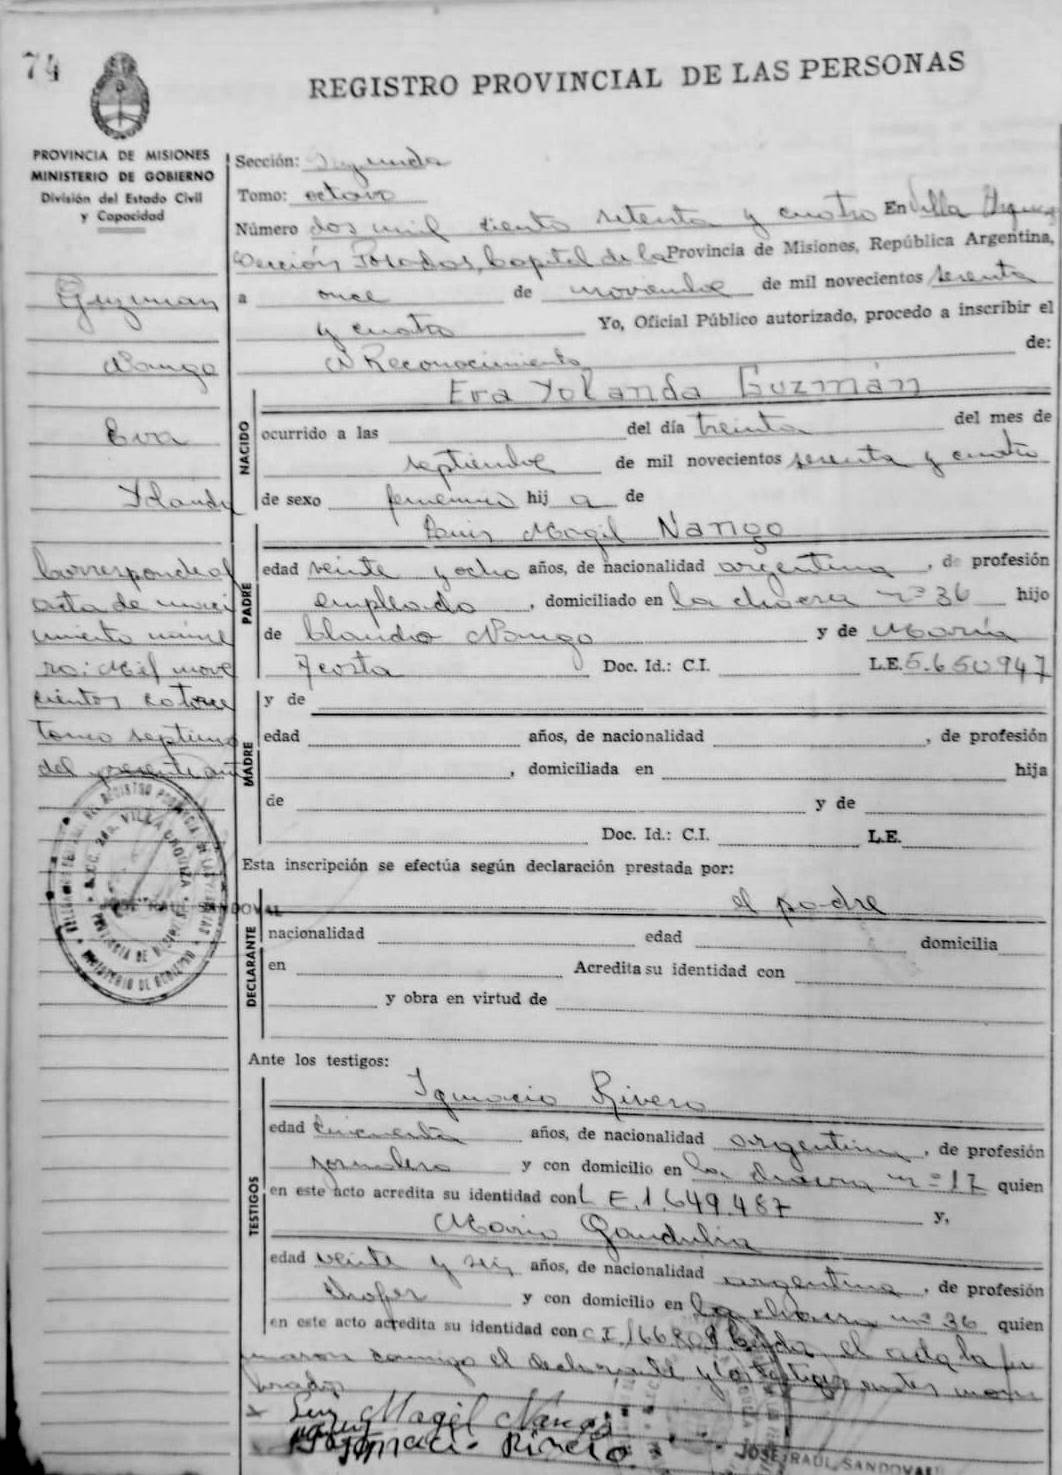 74
REGISTRO PROVINCIAL DE LAS PERSONAS
PROVINCIA DE MISIONES
MINISTERIO DE GOBIERNO
División del Estado Civil
y Capacidad
Guzman
Ñango
Eva
Yolanda
Corresponde al
acta de naci
miento núme
ro: Mil nove
cientos catorce
tomo septimo
del presente año
Sección: Segunda
Tomo: octavo
Número dos mil ciento setenta y cuatro En Villa Urquiza
Sección Posadas, Capital de la Provincia de Misiones, República Argentina,
a once de noviembre de mil novecientos sesenta
y cuatro Yo, Oficial Público autorizado, procedo a inscribir el
Reconocimiento de:
Eva Yolanda Guzmán
NACIDO
ocurrido a las del día treinta del mes de
septiembre de mil novecientos sesenta y cuatro
de sexo femenino hij a de
Luis Magil Ñango
PADRE
edad veinte y ocho años, de nacionalidad argentina, de profesión
empleado, domiciliado en la chacra nº 36 hijo
de Claudio Ñango y de María
Acosta Doc. Id.: C.I. L.E. 5.650947
MADRE
y de
edad años, de nacionalidad , de profesión
, domiciliada en hija
de y de
Doc. Id.: C.I. L.E.
Esta inscripción se efectúa según declaración prestada por:
el padre
DECLARANTE
nacionalidad edad domicilia
en Acredita su identidad con
y obra en virtud de
Ante los testigos:
TESTIGOS
Ignacio Rivero
edad cincuenta años, de nacionalidad argentina, de profesión
jornalero y con domicilio en la chacra nº 17 quien
en este acto acredita su identidad con L E. 1.649.487 y,
Mario Gandulia
edad veinte y seis años, de nacionalidad argentina, de profesión
chofer y con domicilio en la chacra nº 36 quien
en este acto acredita su identidad con C.I. 166.809 Leida el acta la fir
maron conmigo el declarante y los testigos antes nom
brados
Luis Magil Ñango
Ignacio Rivero
JOSE RAUL SANDOVAL